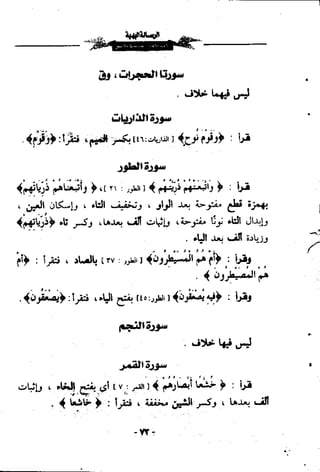 الرسالة البهية
سورتا الحجرات ، وق
ليس فيهما خلاف .
سورة الذاريات
قرأ : ﴿ وَقَوْمَ نُوحٍ ﴾ [ الذاريات :٤٦ ] بكسر الميم ، فتقرأ: ﴿ وَقَوْمِ ﴾ .
سورة الطور
قرأ : ﴿ وَاتَّبَعَتْهُمْ ذُرِّيَّتُهُمْ ﴾ [ الطور : ٢١ ] ، ﴿ وَأَتْبَعْنَاهُمْ ذُرِّيَّاتِهِمْ ﴾
بهمزة قطع مفتوحة بعد الواو ، وتخفيف التاء ، وإسكان العين ،
وإبدال التاء نونًا مفتوحة ، وإثبات ألف بعدها ، وكسر تاء ﴿ ذُرِّيَّاتِهِمْ ﴾
وزيادة ألف بعد الياء .
وقرأ : ﴿ أَمْ هُمُ الْمُصَيْطِرُونَ ﴾ [ الطور : ٣٧ ] بالصاد ، فتقرأ : ﴿ أَمْ
هُمُ الْمُصَيْطِرُونَ ﴾ .
وقرأ : ﴿ فِيهِ يُصْعَقُونَ ﴾ [ الطور :٤٥ ] بفتح الياء ، فتقرأ: ﴿ يَصْعَقُونَ ﴾ .
سورة النجم
ليس فيها خلاف .
سورة القمر
قرأ : ﴿ خُشَّعًا أَبْصَارُهُمْ ﴾ [ القمر : ٧ ] أي بفتح الخاء ، وإثبات
ألف بعدها ، وكسر الشين مخففة ، فتقرأ : ﴿ خَاشِعًا ﴾ .
- ٧٢ -